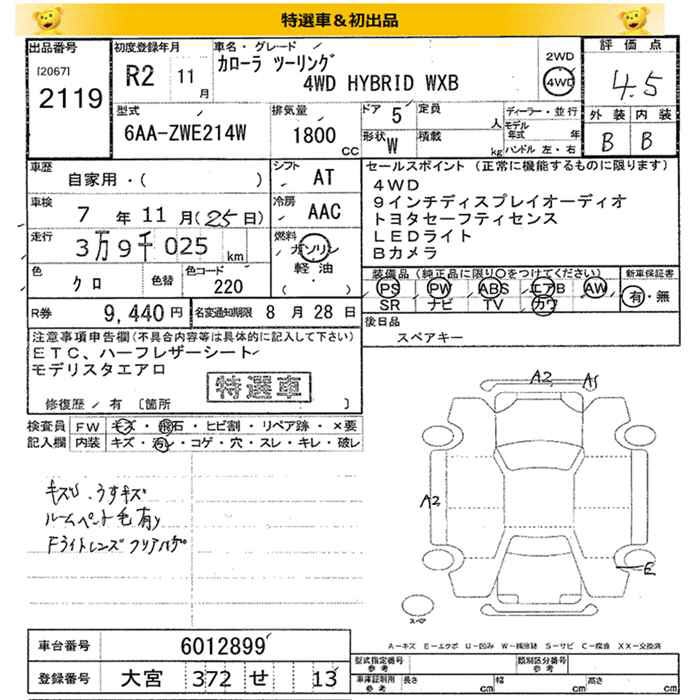 特選車＆初出品
出品番号
[2067]
2119
初度登録年月
R2 11月
車名・グレード
カローラ ツーリング
4WD HYBRID WXB
2WD
4WD
評価点
4.5
外装 内装
B B
型式
6AA-ZWE214W
排気量
1800 CC
ドア 5
形状 W
定員 人
積載 kg
ディーラー・並行
モデル年式 年
ハンドル 左・右
車歴
自家用・( )
車検
7 年 11 月 (25 日)
走行
3万9千025 km
色
クロ
色替
色コード
220
シフト
AT
冷房
AAC
燃料
ガソリン
軽油・
( )
セールスポイント (正常に機能するものに限ります)
4WD
9インチディスプレイオーディオ
トヨタセーフティセンス
LEDライト
Bカメラ
装備品 (純正品に限り○をつけてください)
PS PW ABS エアB AW
SR ナビ TV カワ
新車保証書
有・無
R券 9,440円
名変通知期限 8 月 28 日
後日品
スペアキー
注意事項申告欄(不具合内容等は具体的に記入して下さい)
ETC、ハーフレザーシート
モデリスタエアロ
特選車
修復歴 / 有 〔箇所 〕
検査員記入欄
FW キズ・飛石・ヒビ割・リペア跡・×要
内装 キズ・汚レ・コゲ・穴・スレ・キレ・破レ
キズU うすキズ
ルームペット毛有り
Fライトレンズクリアハゲ
A2 A1
A2
E
スペア
A－キズ E－エクボ U－凹み W－補修跡 S－サビ C－腐食 XX－交換済
車台番号
6012899
登録番号
大宮 372 せ 13
型式指定番号 参考
類別区分番号 参考
車庫証明用 参考
長さ cm 幅 cm 高さ cm